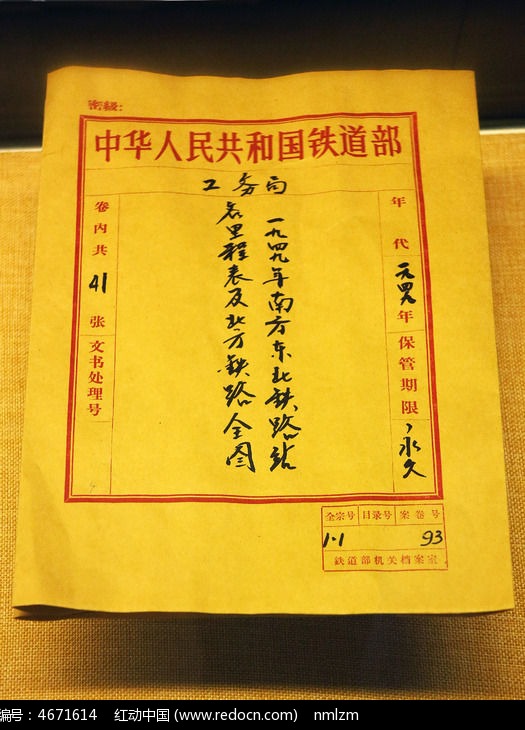 密级:
中华人民共和国铁道部
工务局
年代 一九四九年
保管期限 永久
一九四九年南方东北铁路站
名里程表及北方铁路全图
卷内共 41 张
文书处理号
全宗号 目录号 案卷号
1·1 93
铁道部机关档案室
编号: 4671614 红动中国 (www.redcn.com) nmlzm